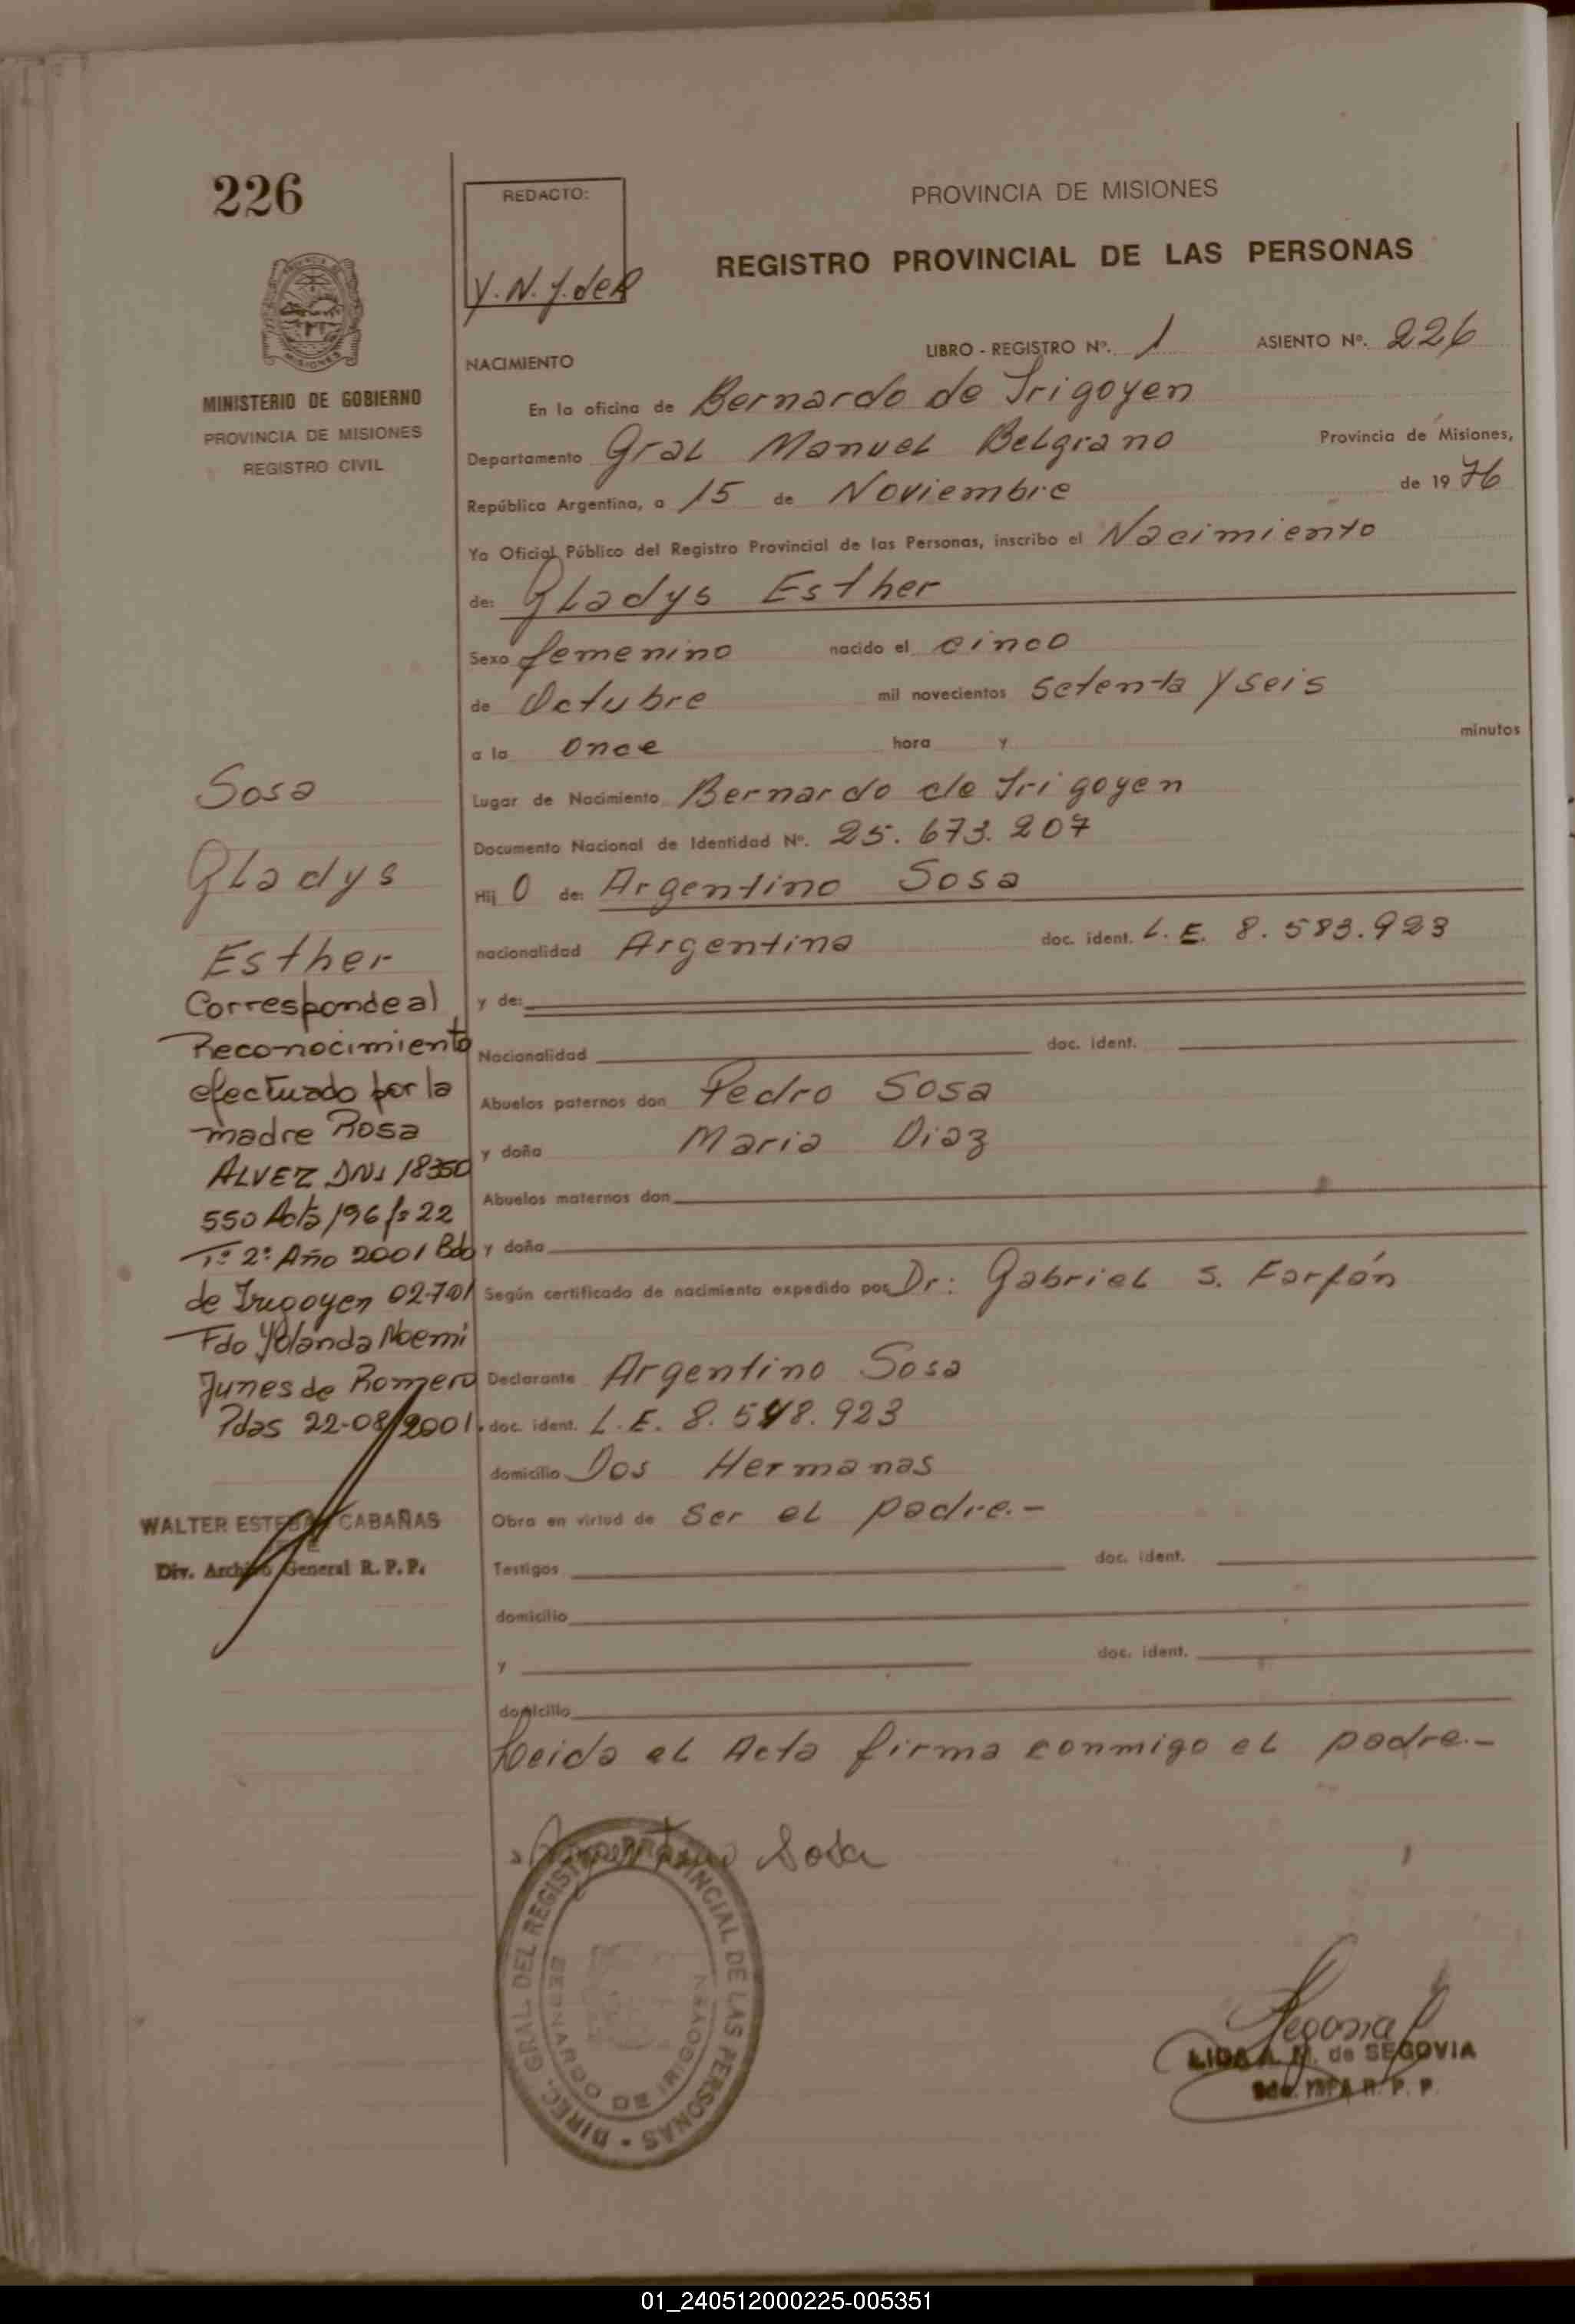 226
REDACTO:
Y. N. J. de R
PROVINCIA DE MISIONES
REGISTRO PROVINCIAL DE LAS PERSONAS
MINISTERIO DE GOBIERNO
PROVINCIA DE MISIONES
REGISTRO CIVIL
NACIMIENTO
LIBRO - REGISTRO Nº. 1 ASIENTO Nº. 226
En la oficina de Bernardo de Irigoyen
Departamento Gral Manuel Belgrano Provincia de Misiones,
República Argentina, a 15 de Noviembre de 1976
Yo Oficial Público del Registro Provincial de las Personas, inscribo el Nacimiento
de: Gladys Esther
Sexo femenino nacido el cinco
de Octubre mil novecientos setenta y seis
a la once hora y minutos
Lugar de Nacimiento Bernardo de Irigoyen
Documento Nacional de Identidad Nº. 25.673.207
Hij O de: Argentino Sosa
nacionalidad Argentina doc. ident. L.E. 8.583.923
y de:
Nacionalidad doc. ident.
Abuelos paternos don Pedro Sosa
y doña Maria Diaz
Abuelos maternos don
y doña
Según certificado de nacimiento expedido por Dr: Gabriel S. Farfán
Declarante Argentino Sosa
doc. ident. L.E. 8.548.923
domicilio Dos Hermanas
Obra en virtud de ser el padre.-
Testigos doc. ident.
domicilio
y doc. ident.
domicilio
Leida el Acta firma conmigo el padre.-
Sosa
Gladys
Esther
Corresponde al
Reconocimiento
efectuado por la
madre Rosa
ALVEZ DNI 18350
550 Acta 196 fs 22
Tº 2º Año 2001 Bdo
de Irigoyen 02-7-01
Fdo Yolanda Noemi
Junes de Romero
Pdas 22-08/2001.
WALTER ESTEBAN CABAÑAS
Div. Archivo General R. P. P.
Argentino Sosa
DIREC. GRAL. DEL REGISTRO PROVINCIAL DE LAS PERSONAS
BERNARDO DE IRIGOYEN
Segovia
LIDA A. M. de SEGOVIA
R. P. P.
01_240512000225-005351